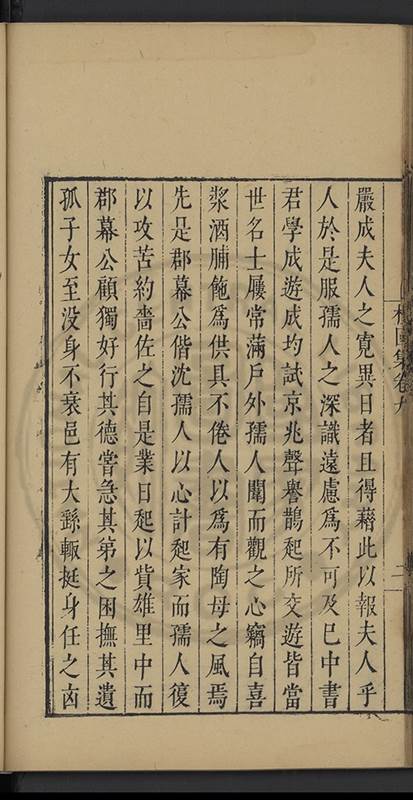 嚴成夫人之寬異日者且得藉此以報夫人乎
人於是服孺人之深識遠慮爲不可及巳中書
君學成遊成均試京兆聲譽鵲起所交遊皆當
世名士屨常滿戶外孺人闚而觀之心竊自喜
漿酒脯飽爲供具不倦人以爲有陶母之風焉
先是郡幕公偕沈孺人以心計起家而孺人復
以攻苦約嗇佐之自是業日起以貲雄里中而
郡幕公顧獨好行其德嘗急其弟之困撫其遺
孤子女至没身不衰邑有大繇輙挺身任之凾
集卷九
二